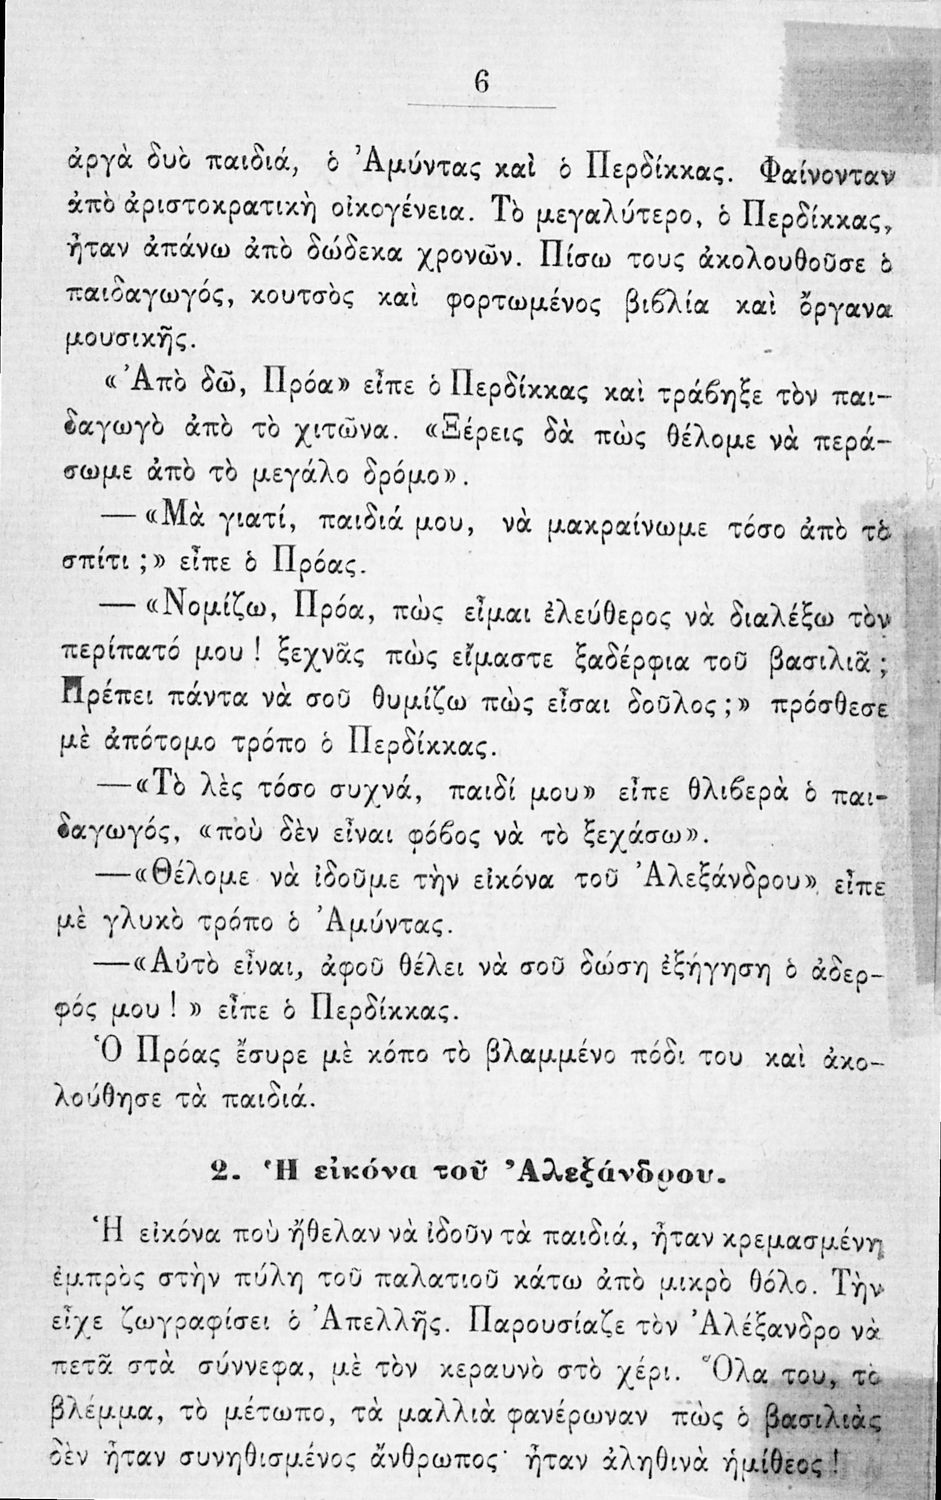 6
ἀργὰ δυὸ παιδιά, ὁ Ἀμύντας καὶ ὁ Περδίκκας. Φαίνονταν
ἀπὸ ἀριστοκρατικὴ οἰκογένεια. Τὸ μεγαλύτερο, ὁ Περδίκκας,
ἦταν ἀπάνω ἀπὸ δώδεκα χρονῶν. Πίσω τους ἀκολουθοῦσε ὁ
παιδαγωγός, κουτσὸς καὶ φορτωμένος βιβλία καὶ ὄργανα
μουσικῆς.
«Ἀπὸ δῶ, Πρόα» εἶπε ὁ Περδίκκας καὶ τράβηξε τὸν παι-
δαγωγὸ ἀπὸ τὸ χιτῶνα. «Ξέρεις δὰ πὼς θέλομε νὰ περά-
σωμε ἀπὸ τὸ μεγάλο δρόμο».
— «Μὰ γιατί, παιδιά μου, νὰ μακραίνωμε τόσο ἀπὸ τὸ
σπίτι ;» εἶπε ὁ Πρόας.
— «Νομίζω, Πρόα, πὼς εἶμαι ἐλεύθερος νὰ διαλέξω τὸν
περίπατό μου ! ξεχνᾶς πὼς εἴμαστε ξαδέρφια τοῦ βασιλιᾶ ;
Πρέπει πάντα νὰ σοῦ θυμίζω πὼς εἶσαι δοῦλος ;» πρόσθεσε
μὲ ἀπότομο τρόπο ὁ Περδίκκας.
—«Τὸ λὲς τόσο συχνά, παιδί μου» εἶπε θλιβερὰ ὁ παι-
δαγωγός, «ποὺ δὲν εἶναι φόβος νὰ τὸ ξεχάσω».
—«Θέλομε νὰ ἰδοῦμε τὴν εἰκόνα τοῦ Ἀλεξάνδρου» εἶπε
μὲ γλυκὸ τρόπο ὁ Ἀμύντας.
—«Αὐτὸ εἶναι, ἀφοῦ θέλει νὰ σοῦ δώσῃ ἐξήγηση ὁ ἀδερ-
φός μου ! » εἶπε ὁ Περδίκκας.
Ὁ Πρόας ἔσυρε μὲ κόπο τὸ βλαμμένο πόδι του καὶ ἀκο-
λούθησε τὰ παιδιά.
2. Ἡ εἰκόνα τοῦ Ἀλεξάνδρου.
Ἡ εἰκόνα ποὺ ἤθελαν νὰ ἰδοῦν τὰ παιδιά, ἦταν κρεμασμένη
ἐμπρὸς στὴν πύλη τοῦ παλατιοῦ κάτω ἀπὸ μικρὸ θόλο. Τὴν
εἶχε ζωγραφίσει ὁ Ἀπελλῆς. Παρουσίαζε τὸν Ἀλέξανδρο νὰ
πετᾶ στὰ σύννεφα, μὲ τὸν κεραυνὸ στὸ χέρι. Ὅλα του, τὸ
βλέμμα, τὸ μέτωπο, τὰ μαλλιὰ φανέρωναν πὼς ὁ βασιλιὰς
δὲν ἦταν συνηθισμένος ἄνθρωπος· ἦταν ἀληθινὰ ἡμίθεος !